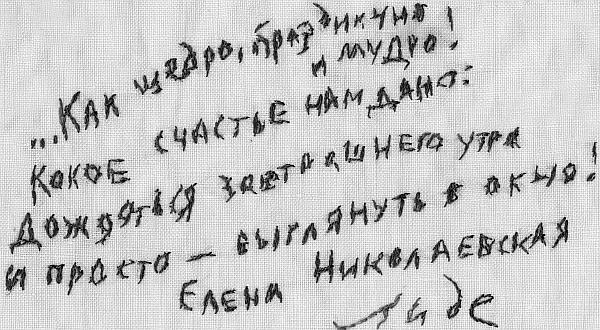 ...Как щедро, празднично
и мудро!
Какое счастье нам дано:
Дождаться завтрашнего утра
и просто — выглянуть в окно!
Елена Николаевская